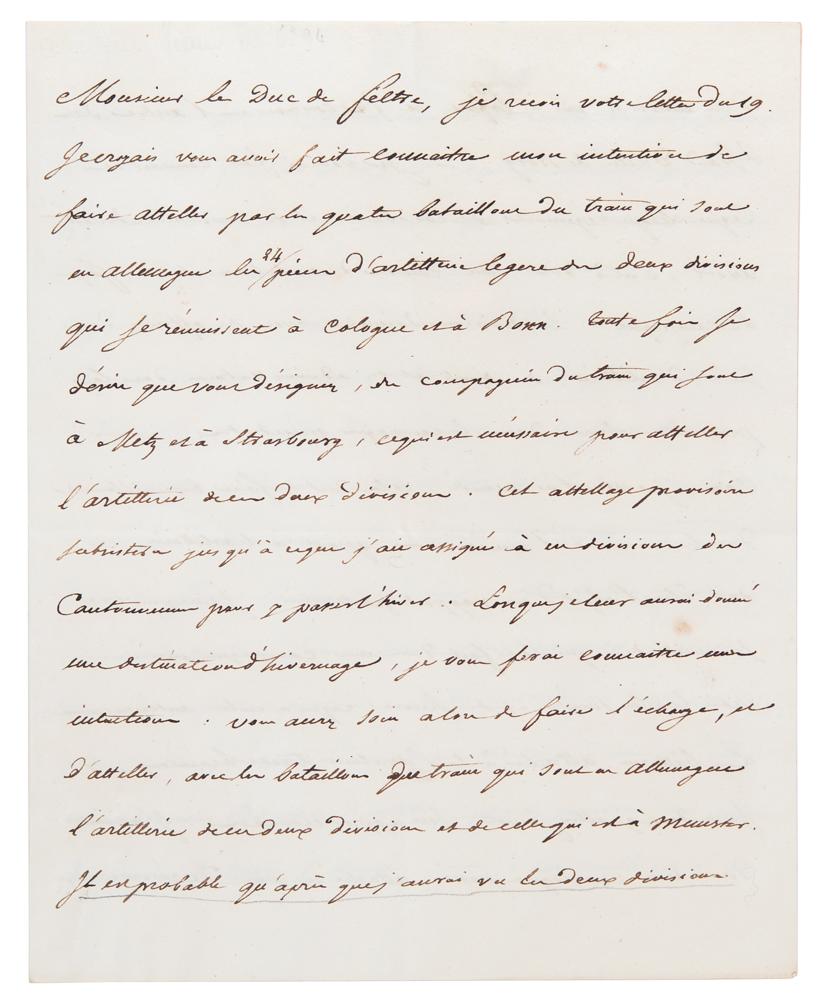 Monsieur le Duc de feltre, je recois votre lettre du 19.
Je croyais vous avoir fait connaitre mon intention de
faire atteller par les quatre bataillons du train qui sont
en allemagne les 24 pièces d'artillerie legere des deux divisions
qui se réunissent à Cologne et à Bonn. toute fois je
désire que vous désigniez, des compagnies du train qui sont
à Metz et à Strasbourg, ce qui est nécessaire pour atteller
l'artillerie de ces deux divisions. cet attellage provisoire
subsistera jusqu'à ce que j'aie assigné à ces divisions des
Cantonnemens pour y passer l'hiver. Lorsque je leur aurai donné
une destination d'hivernage, je vous ferai connaitre mes
intentions. vous aurez soin alors de faire l'échange, et
d'atteller, avec les bataillons du train qui sont en Allemagne
l'artillerie de ces deux divisions et de celle qui est à Munster.
Il est probable qu'après que j'aurai vu les deux divisions